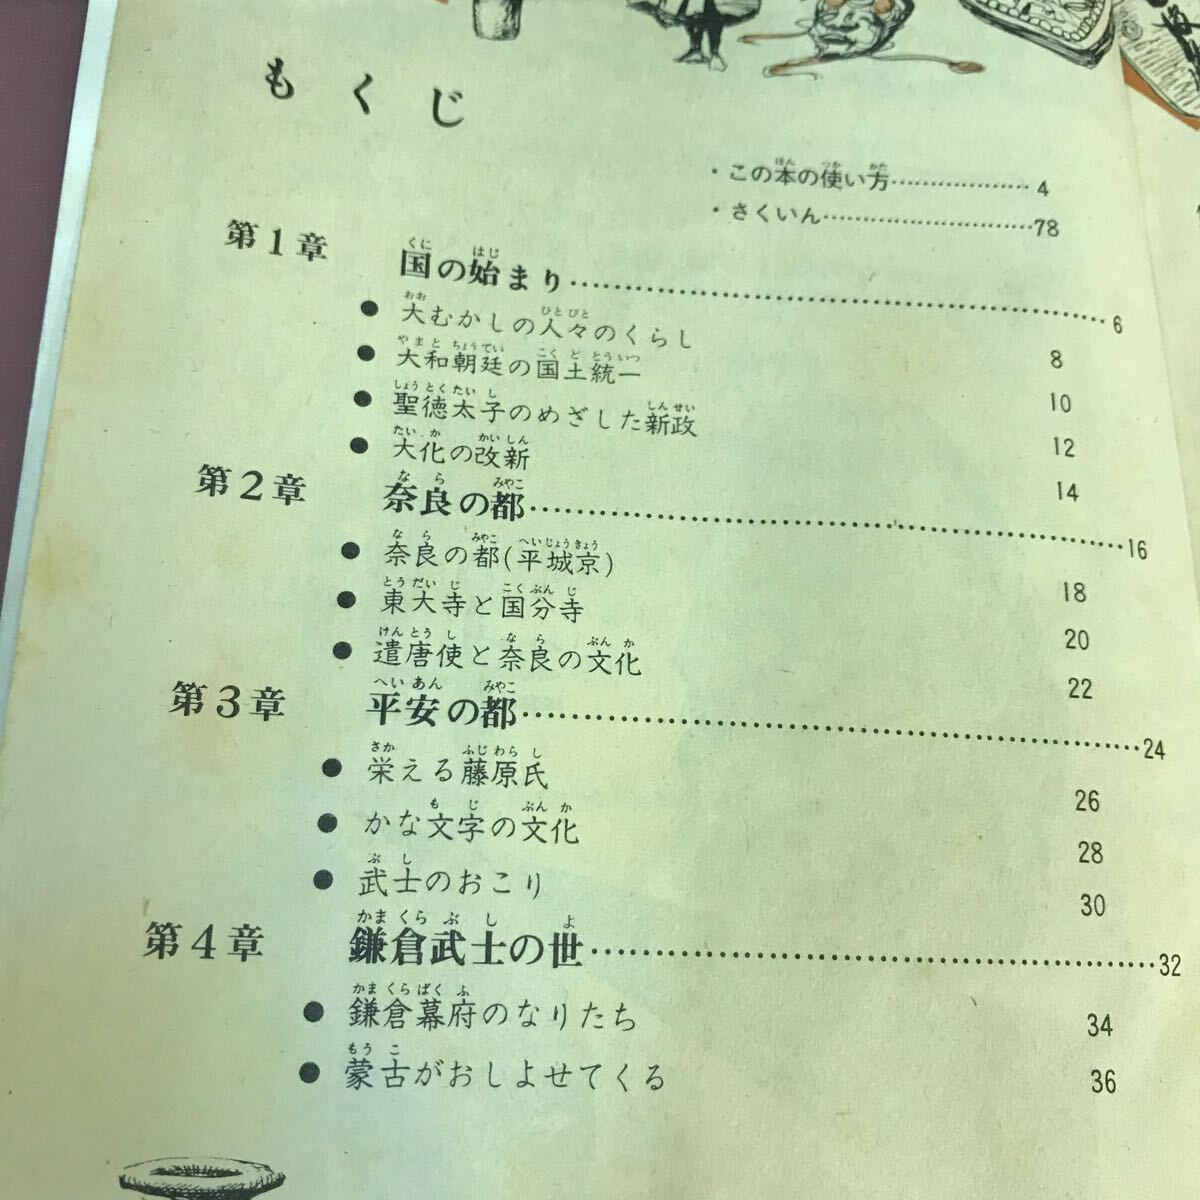 もくじ
・この本の使い方……………………4
・さくいん……………………78
第1章 国の始まり……………………6
●大むかしの人々のくらし 8
●大和朝廷の国土統一 10
●聖徳太子のめざした新政 12
●大化の改新 14
第2章 奈良の都……………………16
●奈良の都(平城京) 18
●東大寺と国分寺 20
●遣唐使と奈良の文化 22
第3章 平安の都……………………24
●栄える藤原氏 26
●かな文字の文化 28
●武士のおこり 30
第4章 鎌倉武士の世……………………32
●鎌倉幕府のなりたち 34
●蒙古がおしよせてくる 36